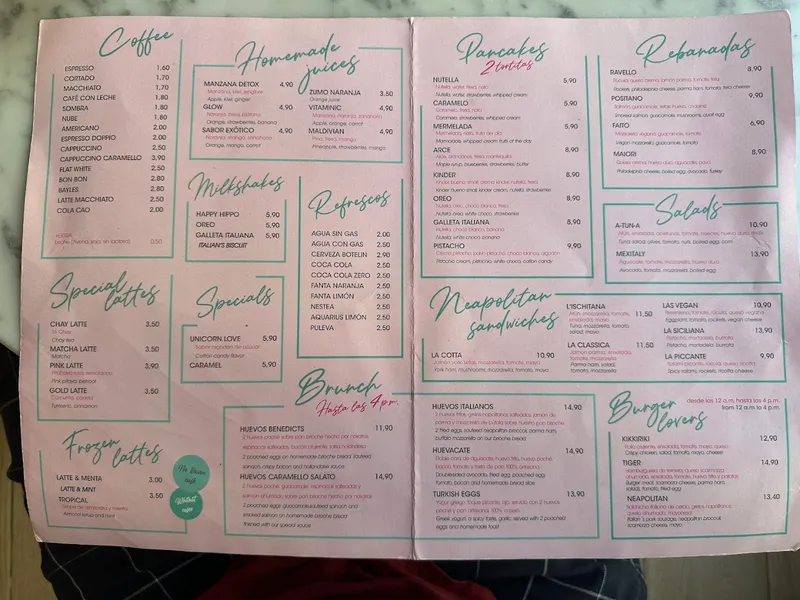 Coffee
ESPRESSO 1.60
CORTADO 1,70
MACCHIATO 1,70
CAFÉ CON LECHE 1.80
SOMBRA 1.80
NUBE 1.80
AMERICANO 2.00
ESPRESSO DOPPIO 2.00
CAPPUCCINO 2.50
CAPPUCCINO CARAMELLO 3,90
FLAT WHITE 2.50
BON BON 2.80
BAYLES 2.80
LATTE MACCHIATO 2.50
COLA CAO 2.00
0.50
Homemade
juices
MANZANA DETOX 4,90
Manzana, kiwi, jengibre
Apple, kiwi, ginger
GLOW 4,90
Naranja, fresa, plátano
Orange, strawberries, banana
SABOR EXÓTICO 4,90
Naranja, mango, zanahoria
Orange, mango, carrot
ZUMO NARANJA 3.50
Orange juice
VITAMINIC 4,90
Manzana, naranja, zanahoria
Apple, orange, carrot
MALDIVIAN 4,90
Piña, fresa, mango
Pineapple, strawberries, mango
Milkshakes
HAPPY HIPPO 5,90
OREO 5,90
GALLETA ITALIANA 5,90
ITALIAN'S BISCUIT
Refrescos
AGUA SIN GAS 2.00
AGUA CON GAS 2.50
CERVEZA BOTELIN 2.90
COCA COLA 2.50
COCA COLA ZERO 2.50
FANTA NARANJA 2.50
FANTA LIMÓN 2.50
NESTEA 2.50
AQUARIUS LIMÓN 2.50
PULEVA 2.50
Special
lattes
CHAY LATTE 3.50
Té Chai
Chay tea
MATCHA LATTE 3.50
Matcha
PINK LATTE 3,90
Pink pitaya, beetroot
GOLD LATTE 3.50
Cúrcuma, canela
Turmeric, cinnamon
Specials
UNICORN LOVE 5,90
Sabor algodón de azúcar
Cotton candy flavor
CARAMEL 5,90
Frozen
lattes
LATTE & MENTA 3.00
LATTE & MINT
TROPICAL 3.50
Sirope de almendras y menta
Almond syrup and mint
Without
coffee
Brunch
Hasta las 4 p.m.
HUEVOS BENEDICTS 11,90
2 poached eggs on homemade bread, sauteed
salmon, crispy bacon and hollandaise sauce
HUEVOS CARAMELO SALATO 14,90
smoked salmon on homemade brioche bread
finished with our special sauce
Pancakes
2 tortitas
NUTELLA 5,90
Nutella, wafer, fresa, nata
Nutella, wafer, strawberries, whipped cream
CARAMELO 5,90
Caramelo, fresa, nata
Caramelo, strawberries, whipped cream
MERMELADA 5,90
Mermelada, nata, fruta del día
Marmalade, whipped cream fruits of the day
ARCE 8,90
Arce, arándanos, fresa, mantequilla
Maple syrup, blueberries, strawberries, butter
KINDER 8,90
Kinder bueno small, crema kinder, nutella, fresa
Kinder bueno small, kinder cream, nutella, strawberries
OREO 8,90
Nutella, oreo, choco blanco, fresa
Nutella, oreo, white choco, strawberries
GALLETA ITALIANA 8,90
Nutella, choco blanco, banana
Nutella, white choco, banana
PISTACHO 9,90
Crema pistacho, polvo pistacho, choco blanco, algodón
Pistacho cream, pistachio, white choco, cotton candy
Rebanadas
RAVELLO 8,90
Rúcula, queso crema, jamón parma, tomate, feta
Rockets, philadelphia cheese, parma ham, tomato, feta cheese
POSITANO 9,90
Salmón, guacamole, setas, huevo, codorniz
Smoked salmon, guacamole, mushrooms, quail egg
FAITO 6,90
Mozzarella vegana, guacamole, tomate
Vegan mozzarella, guacamole, tomato
MAIORI 8,90
Queso crema, huevo duro, aguacate, pavo
Philadelphia cheese, boiled egg, avocado, turkey
Salads
A-TUN-A 10,90
Tuna salad, olives, tomato, nuts, boiled egg, corn
MEXITALY 13,90
Aguacate, tomate, mozzarella, huevo duro
Avocado, tomato, mozzarella, boiled egg
Neapolitan
sandwiches
LA COTTA 10,90
Jamón york, setas, mozzarella, tomate, mayo
York ham, mushrooms, tomato, mozzarella, mayo
L'ISCHITANA 11,50
Atún, mozzarella, tomate,
ensalada, mayo
Tuna, mozzarella, tomato,
salad, mayo
LA CLASSICA 11,50
Jamón parma, ensalada,
tomate, mozzarella
Parma ham, salad,
tomato, mozzarella
LAS VEGAN 10,90
Berenjena, tomate, rúcula, queso vegano
Eggplant, tomato, rockets, vegan cheese
LA SICILIANA 13,90
Pistacho, mortadela, burrata
Pistacho, mortadella, burrata
LA PICCANTE 9,90
Salami picante, rúcula, queso, ricotta
Spicy salami, rockets, ricotta cheese
HUEVOS ITALIANOS 14,90
2 fried eggs, sauteed neapolitan broccoli, parma ham,
buffalo mozzarella on our brioche bread
HUEVACATE 14,90
Double bacon, guacamole, fried egg, poached egg,
tomato, bacon and homemade bread slice
TURKISH EGGS 13,90
Greek yogurt, a spicy taste, garlic, served with 2 poached
eggs and homemade toast
Burger
lovers
desde las 12 a.m. hasta las 4 p.m.
from 12 a.m to 4 p.m.
KIKKIRIKI 12,90
Pollo crujiente, ensalada, tomate, mayo, queso
Crispy chicken, salad, tomato, mayo, cheese
TIGER 14,90
Burger meat, scamorza cheese, parma ham,
salad, tomato, fried egg
NEAPOLITAN 13.40
Italian's pork sausage, neapolitan broccoli
scamorza cheese, mayo